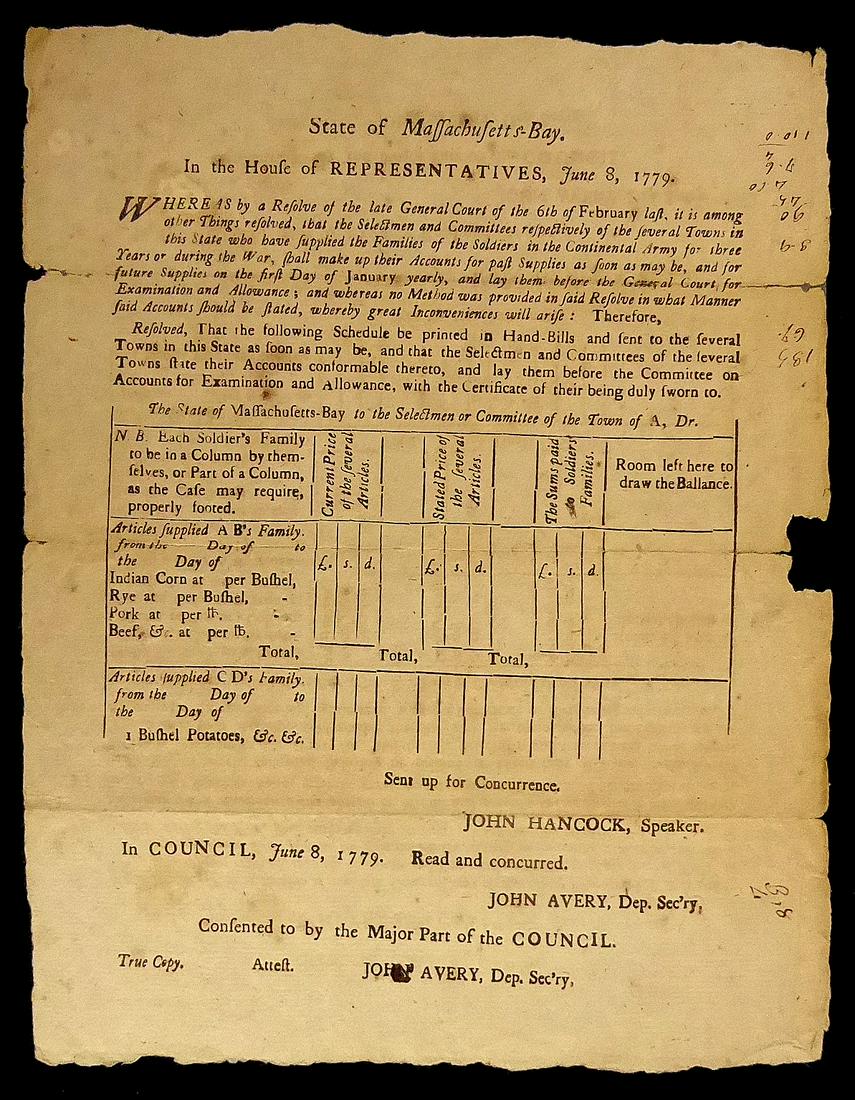 State of Maſſachuſetts-Bay.
In the Houſe of REPRESENTATIVES, June 8, 1779.
WHEREAS by a Reſolve of the late General Court of the 6th of February laſt, it is among
other Things reſolved, that the Selectmen and Committees reſpectively of the ſeveral Towns in
this State who have ſupplied the Families of the Soldiers in the Continental Army for three
Years or during the War, ſhall make up their Accounts for paſt Supplies as ſoon as may be, and for
future Supplies on the firſt Day of January yearly, and lay them before the General Court for
Examination and Allowance; and whereas no Method was provided in ſaid Reſolve in what Manner
ſaid Accounts ſhould be ſtated, whereby great Inconveniences will ariſe: Therefore,
Reſolved, That the following Schedule be printed in Hand-Bills and ſent to the ſeveral
Towns in this State as ſoon as may be, and that the Selectmen and Committees of the ſeveral
Towns ſtate their Accounts conformable thereto, and lay them before the Committee on
Accounts for Examination and Allowance, with the Certificate of their being duly ſworn to.
The State of Maſſachuſetts-Bay to the Selectmen or Committee of the Town of A, Dr.
N B. Each Soldier's Family
to be in a Column by them-
ſelves, or Part of a Column,
as the Caſe may require,
properly footed.
Current Price
of the ſeveral
Articles.
Stated Price of
the ſeveral
Articles.
The Sums paid
to Soldiers
Families.
Room left here to
draw the Ballance.
Articles ſupplied A B's Family.
from the Day of to
the Day of
£. s. d. £. s. d. £. s. d.
Indian Corn at per Buſhel,
Rye at per Buſhel, -
Pork at per ℔. -
Beef, &c. at per ℔. -
Total, Total, Total,
Articles ſupplied C D's Family.
from the Day of to
the Day of
1 Buſhel Potatoes, &c. &c.
Sent up for Concurrence.
JOHN HANCOCK, Speaker.
In COUNCIL, June 8, 1779. Read and concurred.
JOHN AVERY, Dep. Sec'ry,
Conſented to by the Major Part of the COUNCIL.
True Copy. Atteſt. JOHN AVERY, Dep. Sec'ry,